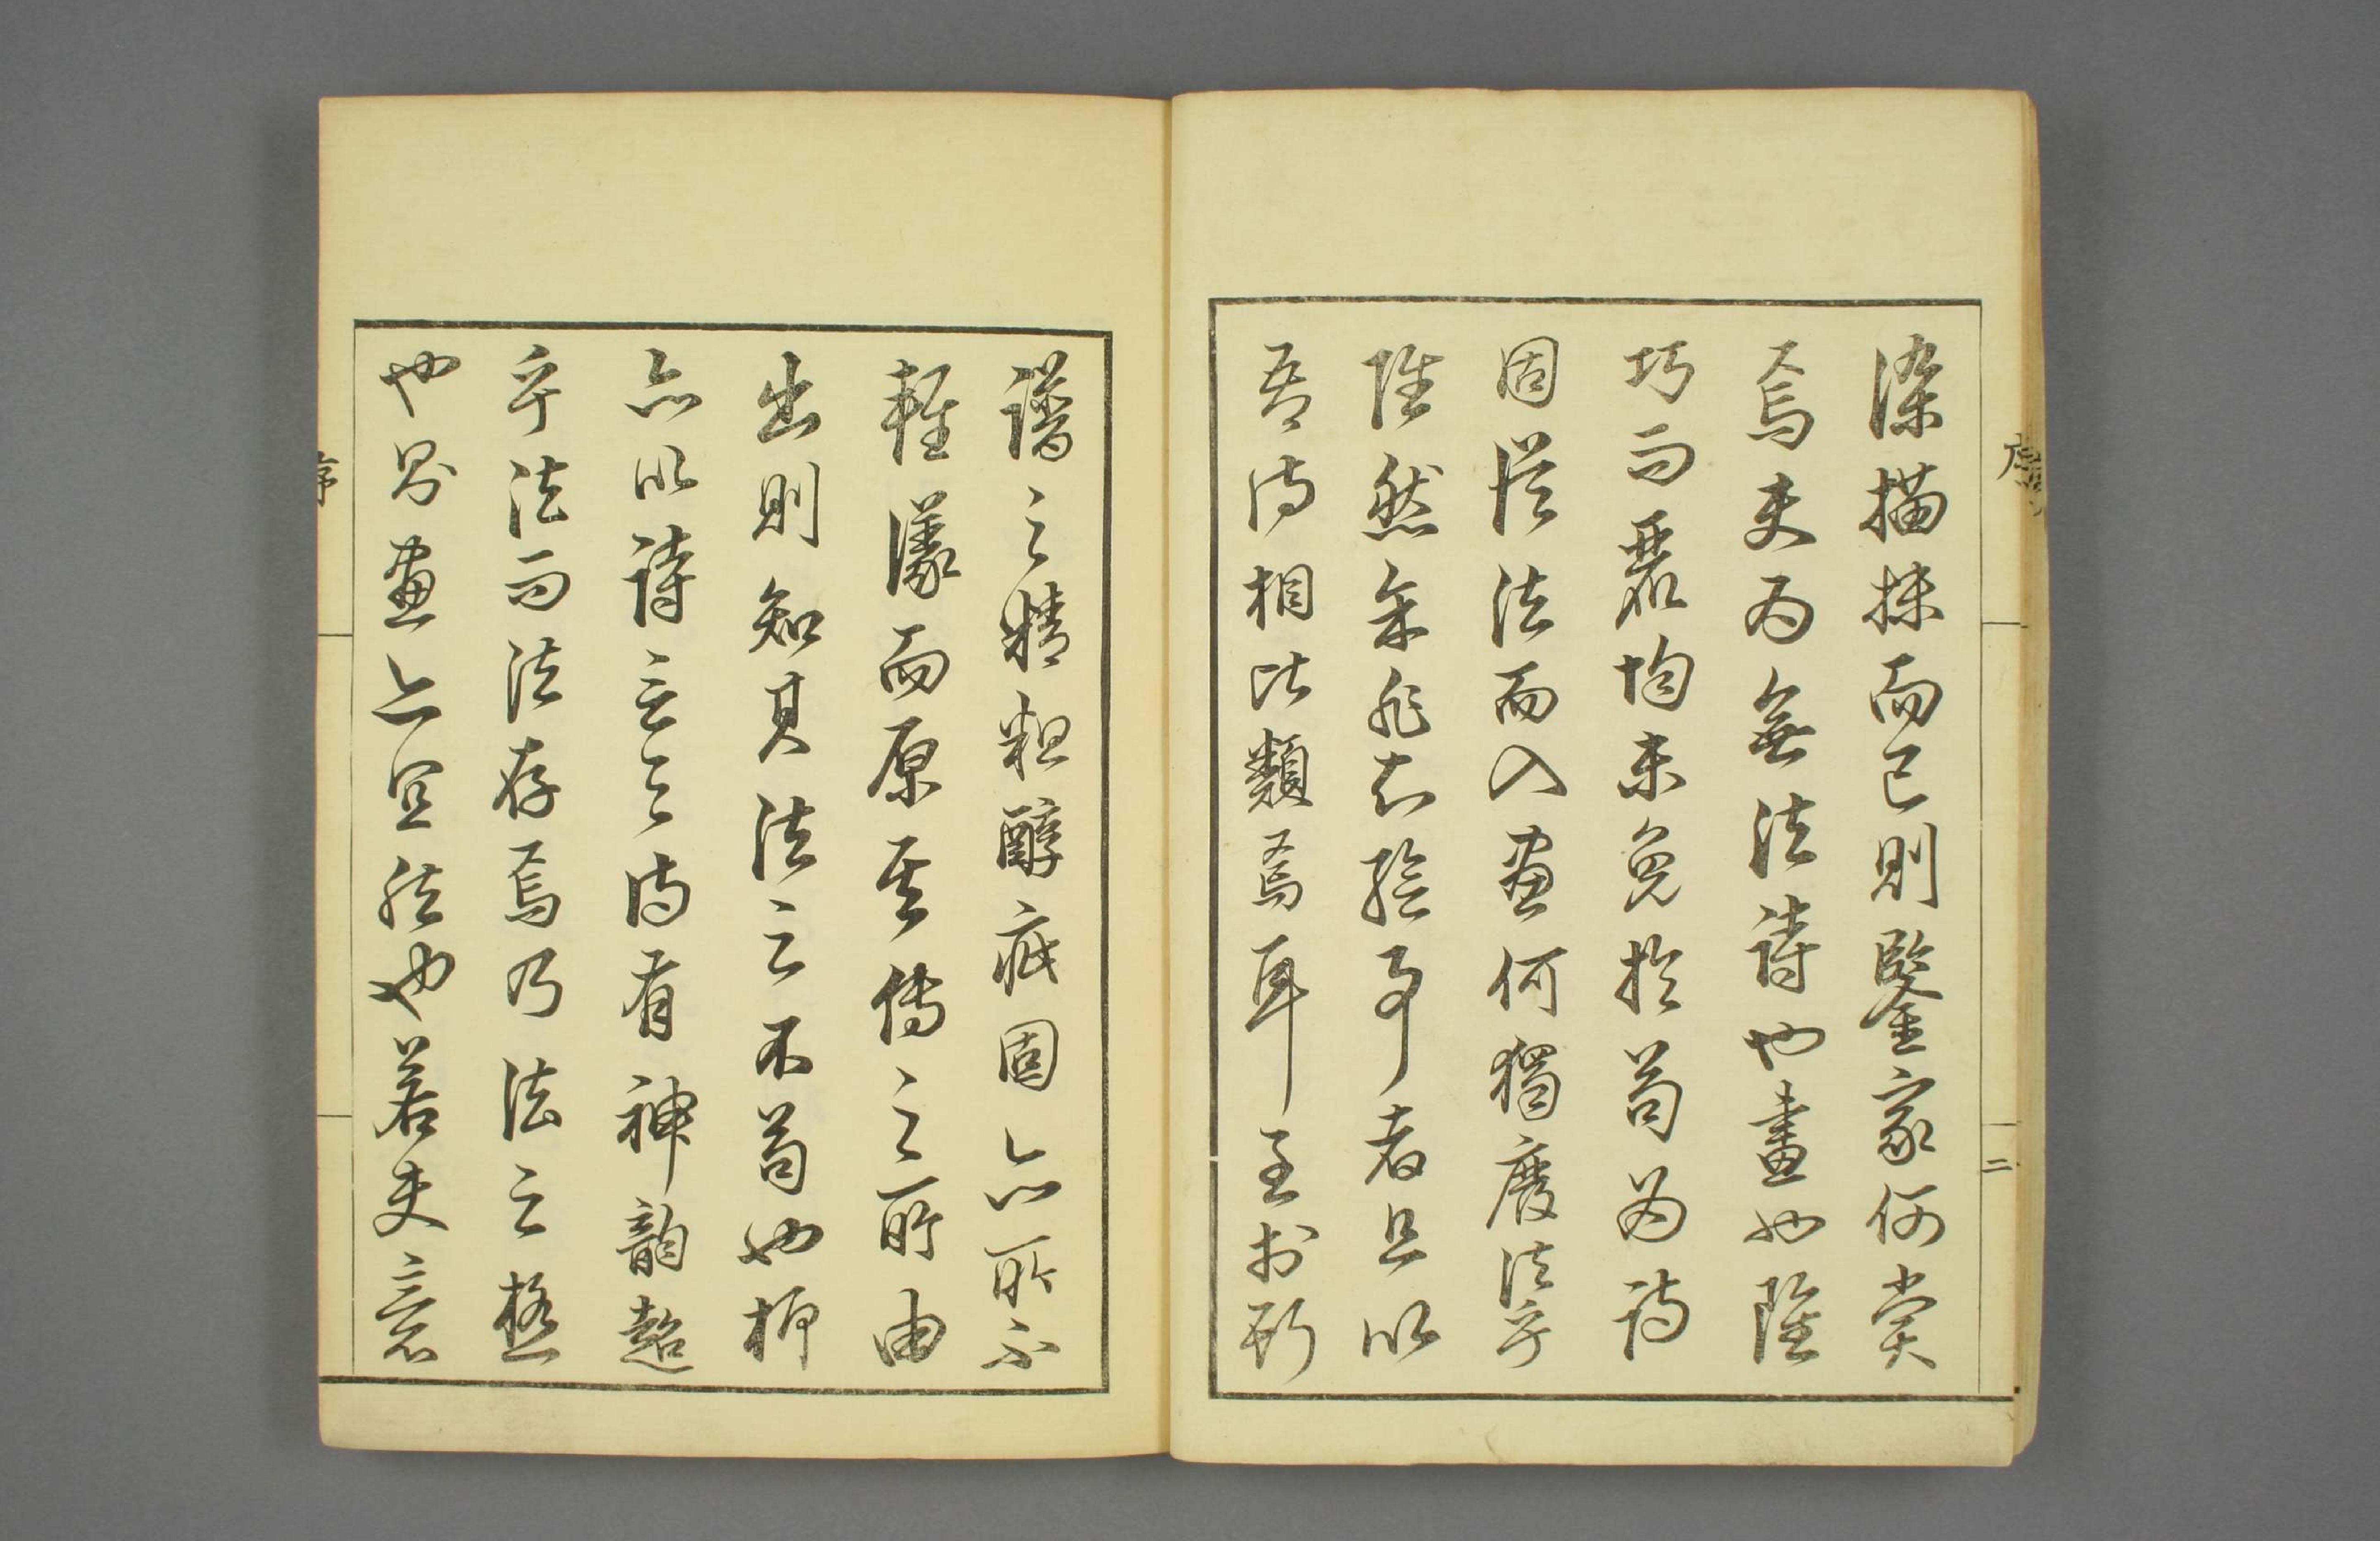 序
二
染描抹而已則鑒家何賞
焉夫為無法詩也畫也雖
巧而麗均未免於苟為詩
固從法而入畫何獨廢法乎
雖然余非知繪事者且以
吾詩相比類焉耳至於
譜之精粗醇疵固亦所不
輕議而原其傳之所由
出則知其法之不苟也抑
亦以詩言之詩有神韻超
乎法而法存焉乃法之極
也畫亦宜然也若夫意
序